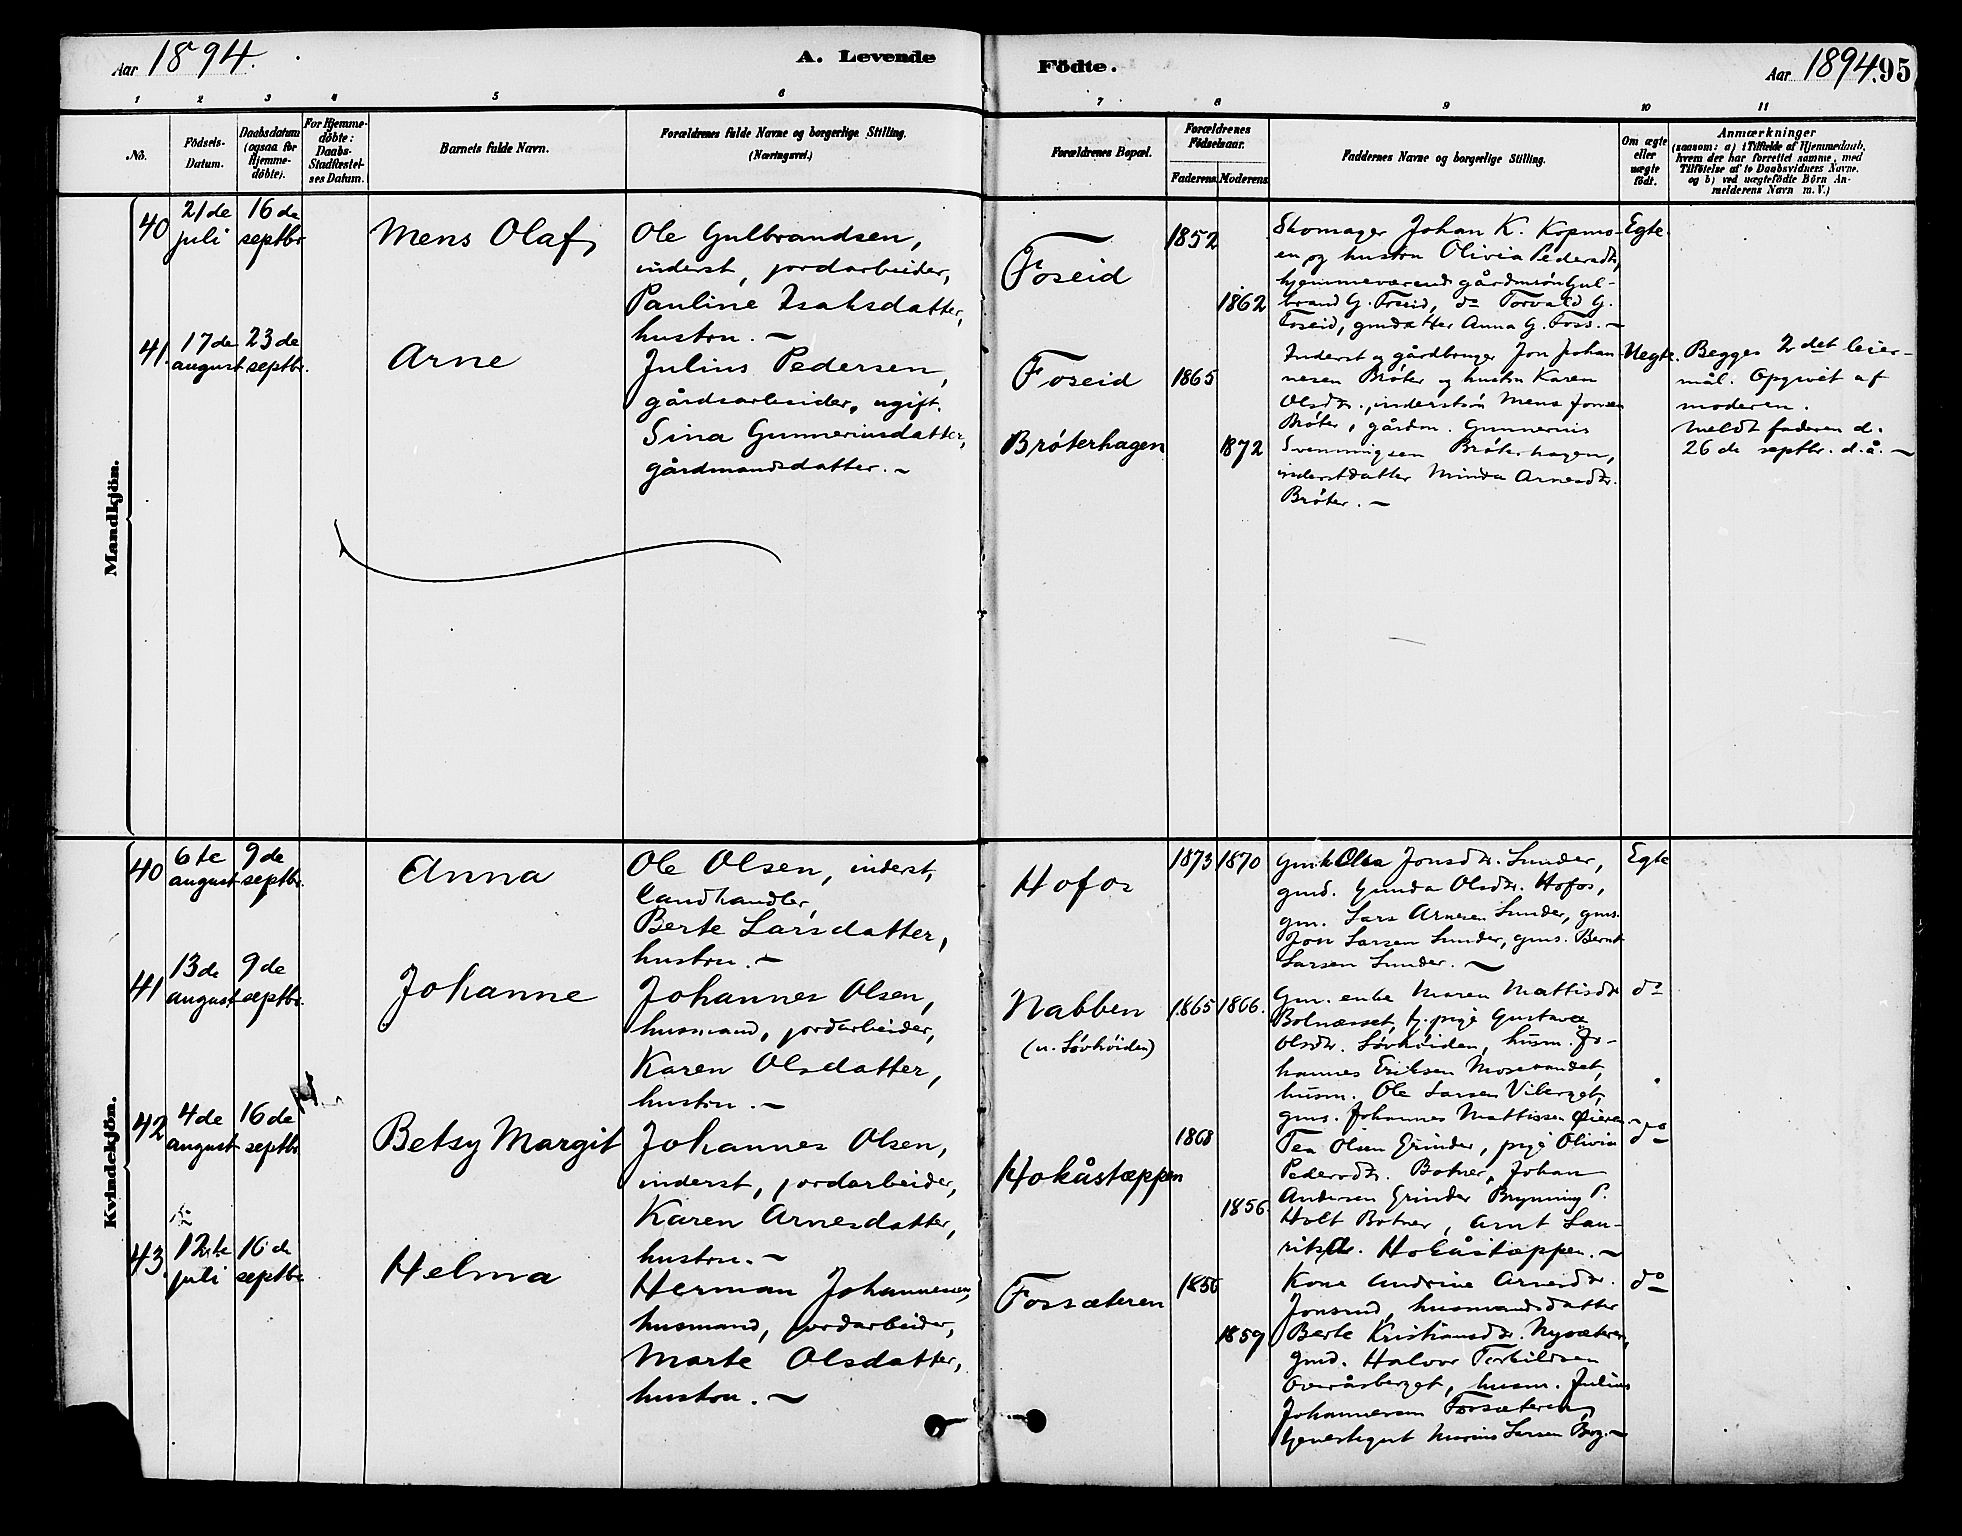 Aar 1894.
A. Levende
Födte.
Aar 1894. 95
1 2 3 4 5 6 7 8 9 10 11
No.
Födsels-
Datum.
Daabsdatum
(ogsaa for
Hjemme-
döbte).
For Hjemme-
döbte:
Daabs-
Stadfæstel-
ses Datum.
Barnets fulde Navn.
Forældrenes fulde Navne og borgerlige Stilling.
(Næringsvei.)
Forældrenes Bopæl.
Forældrenes
Födselsaar.
Faderens Moderens
Faddernes Navne og borgerlige Stilling.
Om ægte
eller
uægte
födt.
Anmærkninger
(saasom: a) i Tilfælde af Hjemmedaab,
hvem der har forrettet samme, med
Tilföielse af to Daabsvidners Navne.
og b) ved uægtefödte Börn An-
melderens Navn m. V.)
Mandkjön.
40
21de
juli
16de
septbr
Mens Olaf
Ole Gulbrandsen,
inderst, jordarbeider,
Pauline Isaksdatter,
hustru. ~
Foseid
1852
1862
Skomager Johan K. Kopmo-
en og hustru Olivia Pedersdtr,
hjemmeværende gårdmsøn Gul-
brand G. Foseid, do Torvald G.
Foseid, gmdatter Anna G. Foss. ~
Egte.
41.
17de
august
23de
septbr.
Arne
Julius Pedersen,
gårdsarbeider, ugift.
Sina Gunneriusdatter,
gårdmandsdatter. ~
Foseid
Brøterhagen
1865
1872
Inderst og gårdbruger Jon Johan-
nesen Brøter og hustru Karen
Olsdtr., inderstsøn Mens Jonsen
Brøter, gårdm. Gunnerius
Svenningsen Brøterhagen,
inderstdatter Minda Arnesdtr.
Brøter. ~
Uegte.
Begges 2det leier-
mål. Opgivet af
moderen.
Meldt faderen d.
26de septbr. d.å. ~
Kvindekjön.
40
6te
august
9de
septbr.
Anna
Ole Olsen, inderst,
landhandler,
Berte Larsdatter,
hustru. ~
Hofos
1873 1870
Olea Jonsdtr. Sunder,
gmd. Gunda Olsdtr. Hofos,
gm. Lars Arnesen Sunder, gms.
Jon Larsen Sunder, gms. Bernt
Larsen Sunder. ~
Egte
41
13de
august
9de
septbr.
Johanne
Johannes Olsen,
husmand, jordarbeider,
Karen Olsdatter,
hustru. ~
Nabben
(u. Løvhöiden)
1865 1866.
Gm. enke Maren Mattisdtr
Bolnæsset, tj. pige Gustava
Olsdtr. Løvhöiden, husm. Jo-
hannes Eriksen Mosevandet,
husm. Ole Larsen Viberget,
gms. Johannes Mattissen Øieren ~
do
42
4de
august
16de
septbr
Betsy Margit
Johannes Olsen,
inderst, jordarbeider,
Karen Arnesdatter,
hustru. ~
Hokåstæppen
1868
1856.
Tea Olsen Grinder, pige Olivia
Pedersdtr. Botner, Johan
Andersen Grinder Brynning P.
Holt Botner, Arnt Lau-
Hokåstæppen. ~
do
43.
12te
juli
16de
septbr
Helma
Herman Johannesen,
husmand, jordarbeider,
Marte Olsdatter,
hustru. ~
Forsæteren
1859
Kone Andrine Arnesdtr.
Jonsrud, husmandsdatter
Berte Kristiansdtr. Nysæteren,
gmd. Halvor Terkildsen
Overåsberget, husm. Julius
Johannesen Forsæteren,
Marius Larsen Berg. ~
do